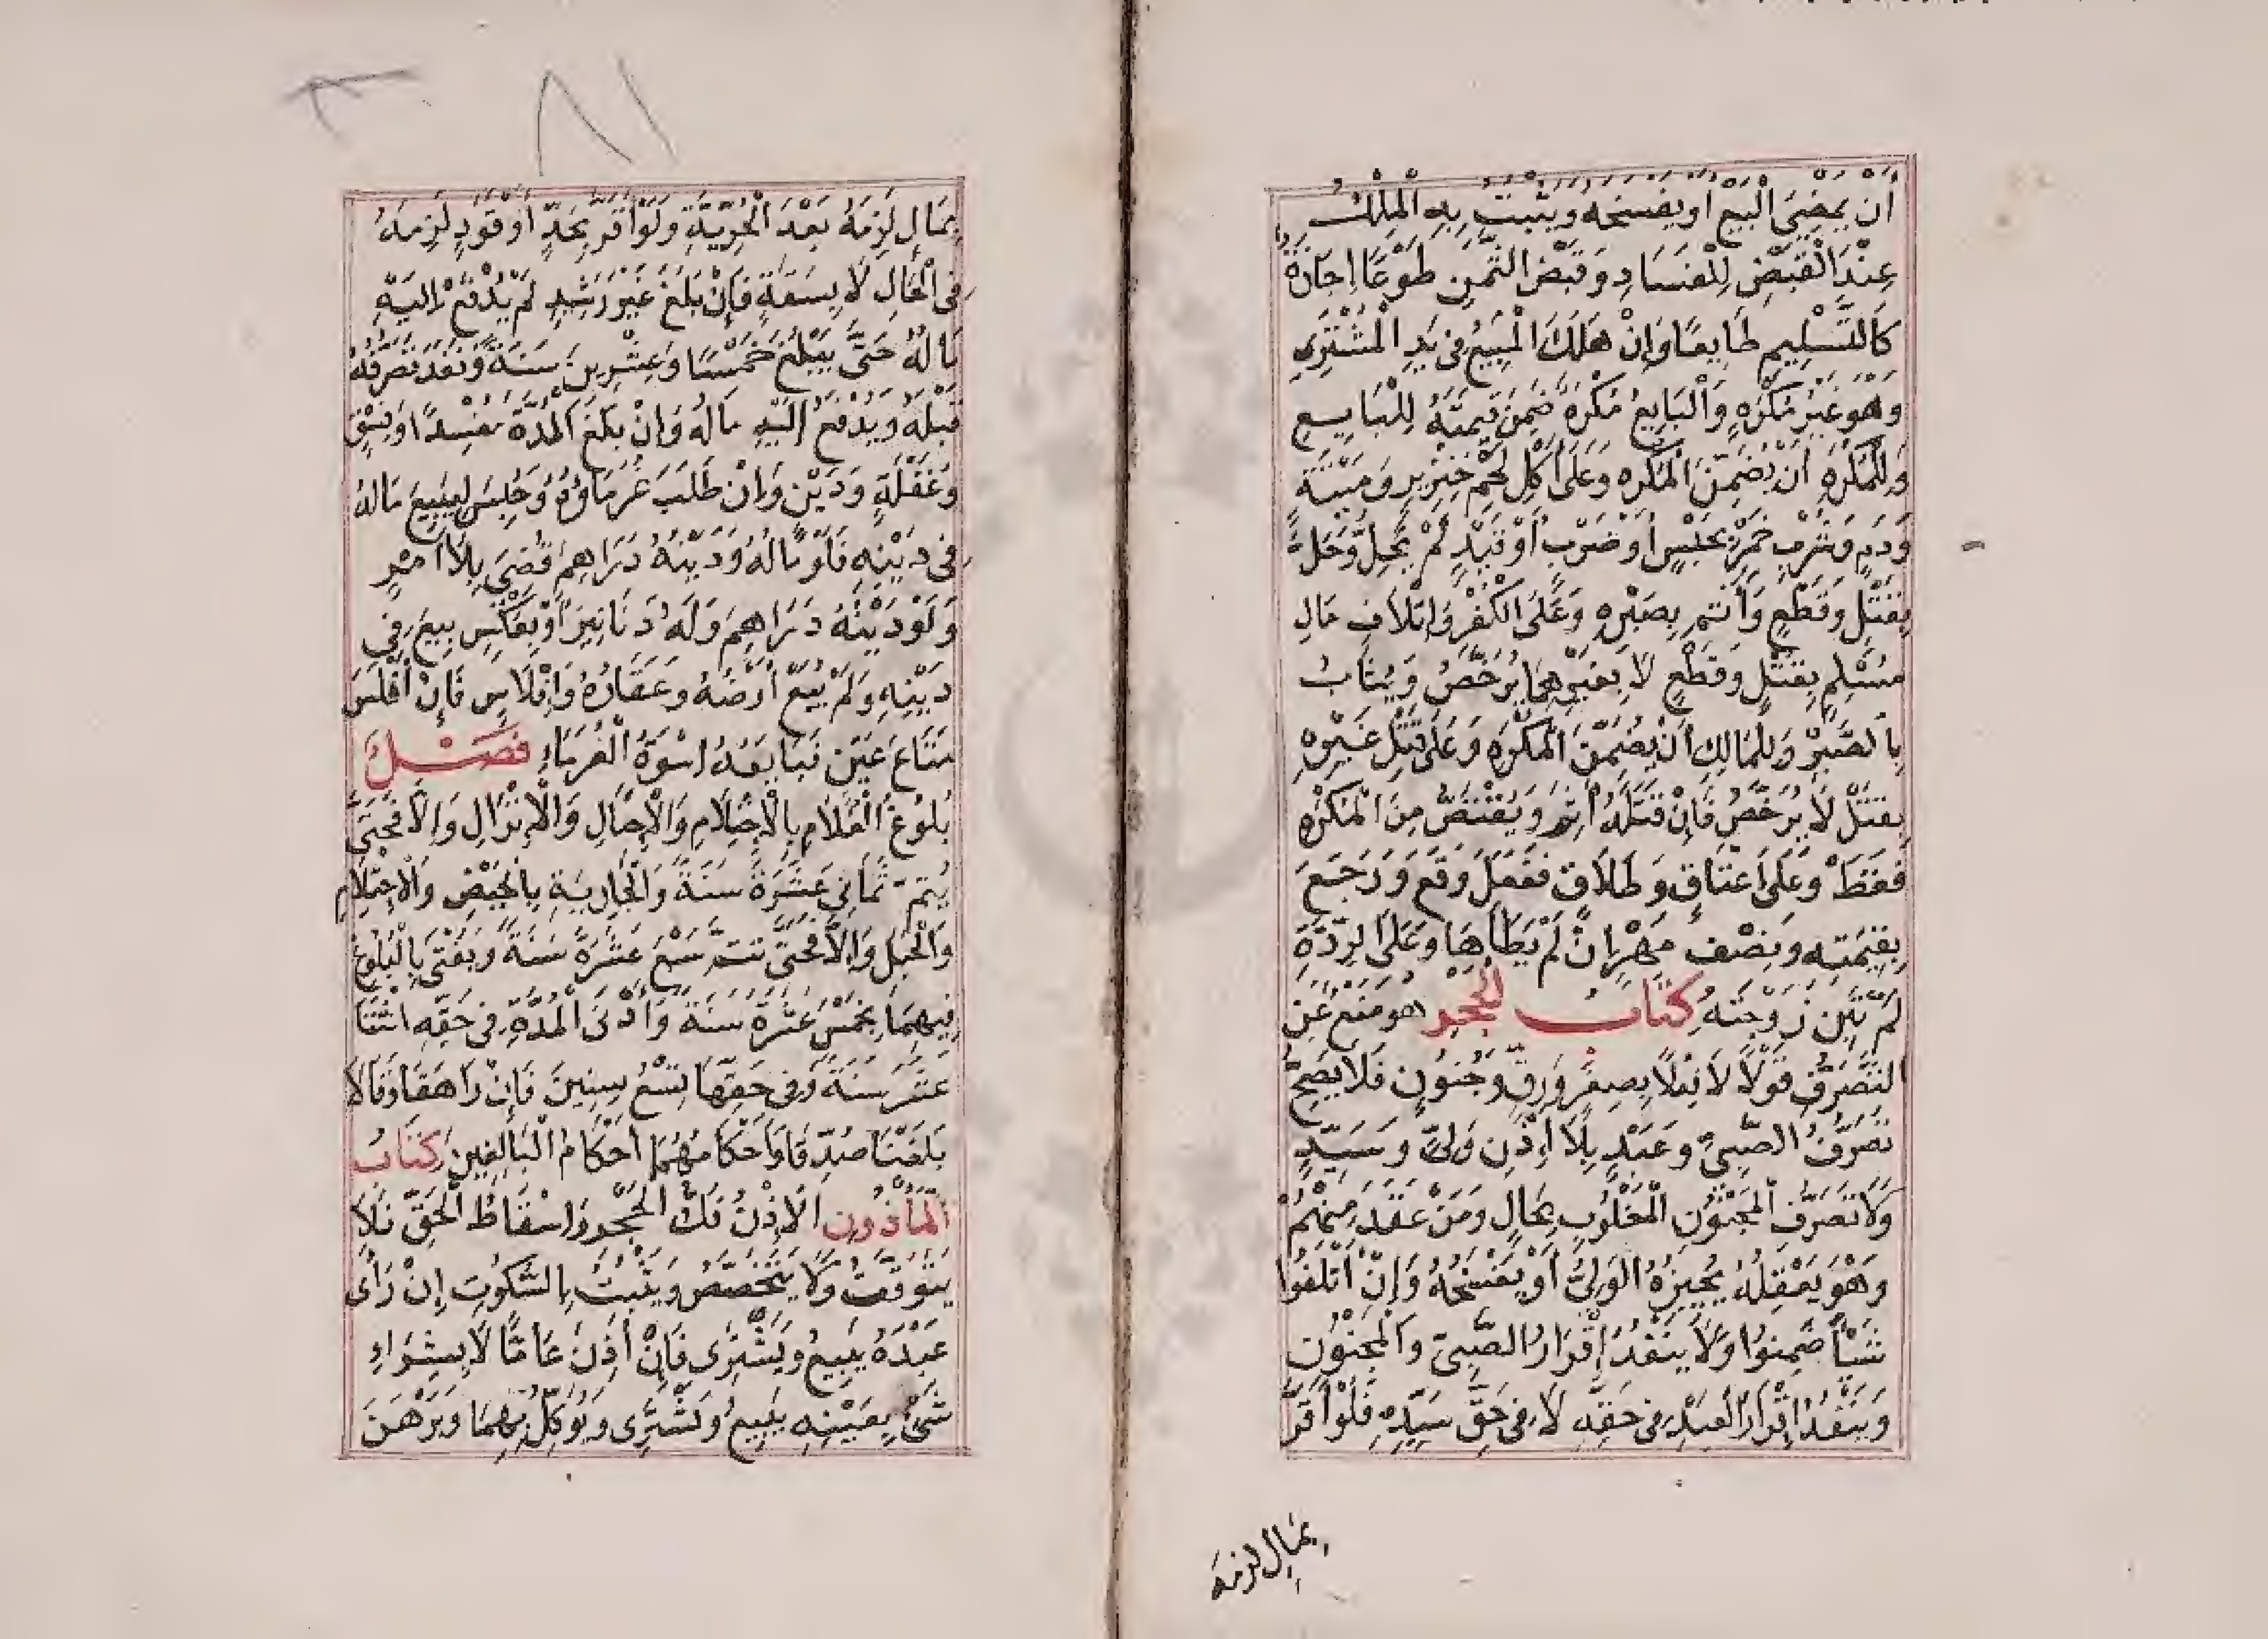 أَنْ يُمْضِيَ الْبَيْعَ أَوْ يَفْسَخَهُ وَيَثْبُتُ بِهِ الْمِلْكُ
عِنْدَ الْقَبْضِ لِلْفَسَادِ وَقَبْضُ الثَّمَنِ طَوْعًا إِجَازَةٌ
كَالتَّسْلِيمِ طَايِعًا وَإِنْ هَلَكَ الْمَبِيعُ فِي يَدِ الْمُشْتَرِي
وَهُوَ غَيْرُ مُكْرَهٍ وَالْبَايِعُ مُكْرَهٌ ضَمِنَ قِيمَتَهُ لِلْبَايِعِ
وَلِلْمُكْرَهِ أَنْ يُضَمِّنَ الْمُكْرِهَ وَعَلَى أَكْلِ لَحْمِ خِنْزِيرٍ وَمَيْتَةٍ
وَدَمٍ وَشُرْبِ خَمْرٍ بِحَبْسٍ أَوْ ضَرْبٍ أَوْ قَيْدٍ لَمْ يَحِلَّ وَحَلَّ
بِقَتْلٍ وَقَطْعٍ وَأَثِمَ بِصَبْرِهِ وَعَلَى الْكُفْرِ وَإِتْلَافِ مَالِ
مُسْلِمٍ بِقَتْلٍ وَقَطْعٍ لَا بِغَيْرِهِمَا يُرَخَّصُ وَيُثَابُ
بِالصَّبْرِ وَلِلْمَالِكِ أَنْ يُضَمِّنَ الْمُكْرِهَ وَعَلَى قَتْلِ غَيْرِهِ
بِقَتْلٍ لَا يُرَخَّصُ فَإِنْ قَتَلَهُ أَثِمَ وَيُقْتَصُّ مِنَ الْمُكْرِهِ
فَقَطْ وَعَلَى اعْتَاقٍ وَطَلَاقٍ فَفَعَلَ وَقَعَ وَرَجَعَ
بِقِيمَتِهِ وَنِصْفِ مَهْرِ إِنْ لَمْ يَطَأْهَا وَعَلَى الرِّدَّةِ
لَمْ تَبِنْ زَوْجَتُهُ كِتَابُ الْحَجْرِ هُوَ مَنْعٌ عَنِ
التَّصَرُّفِ قَوْلًا لَا فِعْلًا بِصِغَرٍ وَرِقٍّ وَجُنُونٍ فَلَا يَصِحُّ
تَصَرُّفُ الصَّبِيِّ وَعَبْدٍ بِلَا إِذْنِ وَلِيٍّ وَسَيِّدٍ
وَلَا تَصَرُّفُ الْمَجْنُونِ الْمَغْلُوبِ بِحَالٍ وَمَنْ عَقَدَ مِنْهُمْ
وَهُوَ يَعْقِلُهُ يُجِيزُهُ الْوَلِيُّ أَوْ يَفْسَخُهُ وَإِنْ أَتْلَفُوا
شَيْأً ضَمِنُوا وَلَا يَنْفُذُ إِقْرَارُ الصَّبِيِّ وَالْمَجْنُونِ
وَيَنْفُذُ إِقْرَارُ الْعَبْدِ فِي حَقِّهِ لَا فِي حَقِّ سَيِّدِهِ فَلَوْ أَقَرَّ
بِمَالٍ لزمه
بِمَالٍ لَزِمَهُ بَعْدَ الْحُرِّيَّةِ وَلَوْ أَقَرَّ بِحَدٍّ أَوْ قَوَدٍ لَزِمَهُ
فِي الْحَالِ لَا بِسَفَهٍ فَإِنْ بَلَغَ غَيْرَ رَشِيدٍ لَمْ يُدْفَعْ إِلَيْهِ
مَالُهُ حَتَّى يَبْلُغَ خَمْسًا وَعِشْرِينَ سَنَةً وَنَفَذَ تَصَرُّفُهُ
قَبْلَهُ وَيُدْفَعُ إِلَيْهِ مَالُهُ وَإِنْ بَلَغَ الْمُدَّةَ مُفْسِدًا وَفِسْقٍ
وَغَفْلَةٍ وَدَيْنٍ وَإِنْ طَلَبَ غُرَمَاؤُهُ وَحُبِسَ لِيَبِيعَ مَالَهُ
فِي دَيْنِهِ فَلَوْ مَالُهُ وَدَيْنُهُ دَرَاهِمَ قُضِيَ بِلَا أَمْرٍ
وَلَوْ دَيْنُهُ دَرَاهِمَ وَلَهُ دَنَانِيرَ أَوْ بِعَكْسٍ بِيعَ فِي
دَيْنِهِ وَلَمْ يُبَعْ أَرْضُهُ وَعَقَارُهُ وَإِفْلَاسٍ فَإِنْ أَفْلَسَ
مَتَاعَ عَيْنٍ فَبَايَعَهُ اسْوَةُ الْغُرَمَاءِ فَصْلٌ
بُلُوغُ الْغُلَامِ بِالْاحْتِلَامِ وَالْإِحْبَالِ وَالْإِنْزَالِ وَإِلَّا فَحَتَّى
يُتِمَّ ثَمَانِي عَشَرَةَ سَنَةً وَالْجَارِيَةِ بِالْحَيْضِ وَالْاحْتِلَامِ
وَالْحَبَلِ وَإِلَّا فَحَتَّى تتم سَبْعَ عَشَرَةَ سَنَةً وَيُفْتَى بِالْبُلُوغِ
فِيهِمَا بِخَمْسَ عَشَرَةَ سَنَةً وَأَدْنَى الْمُدَّةِ فِي حَقِّهِ اثْنَتَا
عَشَرَ سَنَةً وَفِي حَقِّهَا تِسْعُ سِنِينَ فَإِنْ رَاهَقَا وَقَالَا
بَلَغْنَا صُدِّقَا وَأَحْكَامُهُمَا أَحْكَامُ الْبَالِغِينَ كِتَابُ
الْمَأْذُونِ الْإِذْنُ فَكُّ الْحَجْرِ وَإِسْقَاطُ الْحَقِّ فَلَا
يَتَوَقَّتُ وَلَا يَتَخَصَّصُ وَيَثْبُتُ بِالسُّكُوتِ إِنْ رَأَى
عَبْدَهُ يَبِيعُ وَيَشْتَرِي فَإِنْ أَذِنَ عَامًّا لَا بِشِرَاءِ
شَيْءٍ بِعَيْنِهِ يَبِيعُ وَيَشْتَرِي وَيُوَكِّلُ بِهِمَا وَيَرْهَنَ